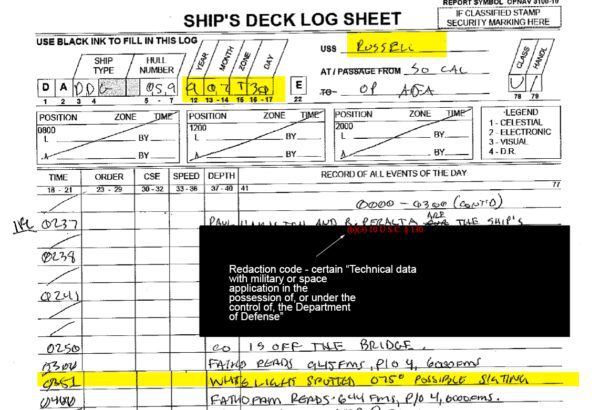 REPORT SYMBOL OPNAV 3100-10
IF CLASSIFIED STAMP
SECURITY MARKING HERE
SHIP'S DECK LOG SHEET
USE BLACK INK TO FILL IN THIS LOG
USS RUSSELL
SHIP TYPE
HULL NUMBER
YEAR
MONTH
ZONE
DAY
CLASS
HANDL
D A DDG 059 9 07 T 30 E
AT / PASSAGE FROM SO CAL
TO OP AREA
U
1 2 3 4 5 - 7 12 13 - 14 15 16 - 17 22 78 79
POSITION ZONE TIME
0800
L BY
BY
POSITION ZONE TIME
1200
L BY
BY
POSITION ZONE TIME
2000
L BY
BY
LEGEND
1 - CELESTIAL
2 - ELECTRONIC
3 - VISUAL
4 - D.R.
TIME ORDER CSE SPEED DEPTH RECORD OF ALL EVENTS OF THE DAY
18 - 21 23 - 29 30 - 32 33 - 36 37 - 40 41 77
0000 - 0300 (CONT'D)
0237 AND R. PERALTA ARE THE SHIP'S
(b)(3) 10 U.S.C. § 130
0238
Redaction code - certain "Technical data
with military or space
application in the
possession of, or under the
control of, the Department
of Defense"
0241
0250 CO IS OFF THE BRIDGE.
0300 FATHO READS 645 FMS, P/O 4, 600 FMS
0351 WHITE LIGHT SPOTTED 075° POSSIBLE SIGTING
0400 READS 644 FMS, P/O 4, 600 FMS